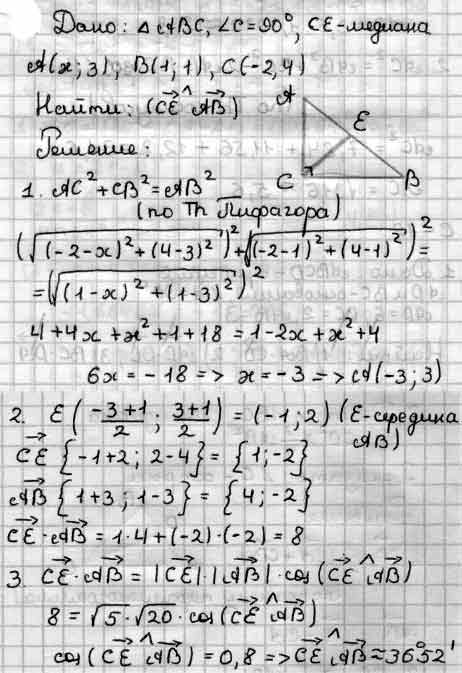 Дано: △ABC, ∠C=90°, CE-медиана
A(x;3), B(1;1), C(-2,4)
Найти: (CE^AB)
Решение:
A
E
C
B
1. AC²+CB²=AB²
(по Th Пифагора)
(√((-2-x)²+(4-3)²))²+(√((-2-1)²+(4-1)²))²=
=(√((1-x)²+(1-3)²))²
4+4x+x²+1+18=1-2x+x²+4
6x=-18=>x=-3=>A(-3;3)
2. E((-3+1)/2; (3+1)/2)=(-1;2) (E-середина AB)
CE{-1+2; 2-4}={1;-2}
AB{1+3; 1-3}={4;-2}
CE·AB=1·4+(-2)·(-2)=8
3. CE·AB=|CE|·|AB|·cos(CE^AB)
8=√5·√20·cos(CE^AB)
cos(CE^AB)=0,8=>CE^AB≈36°52'